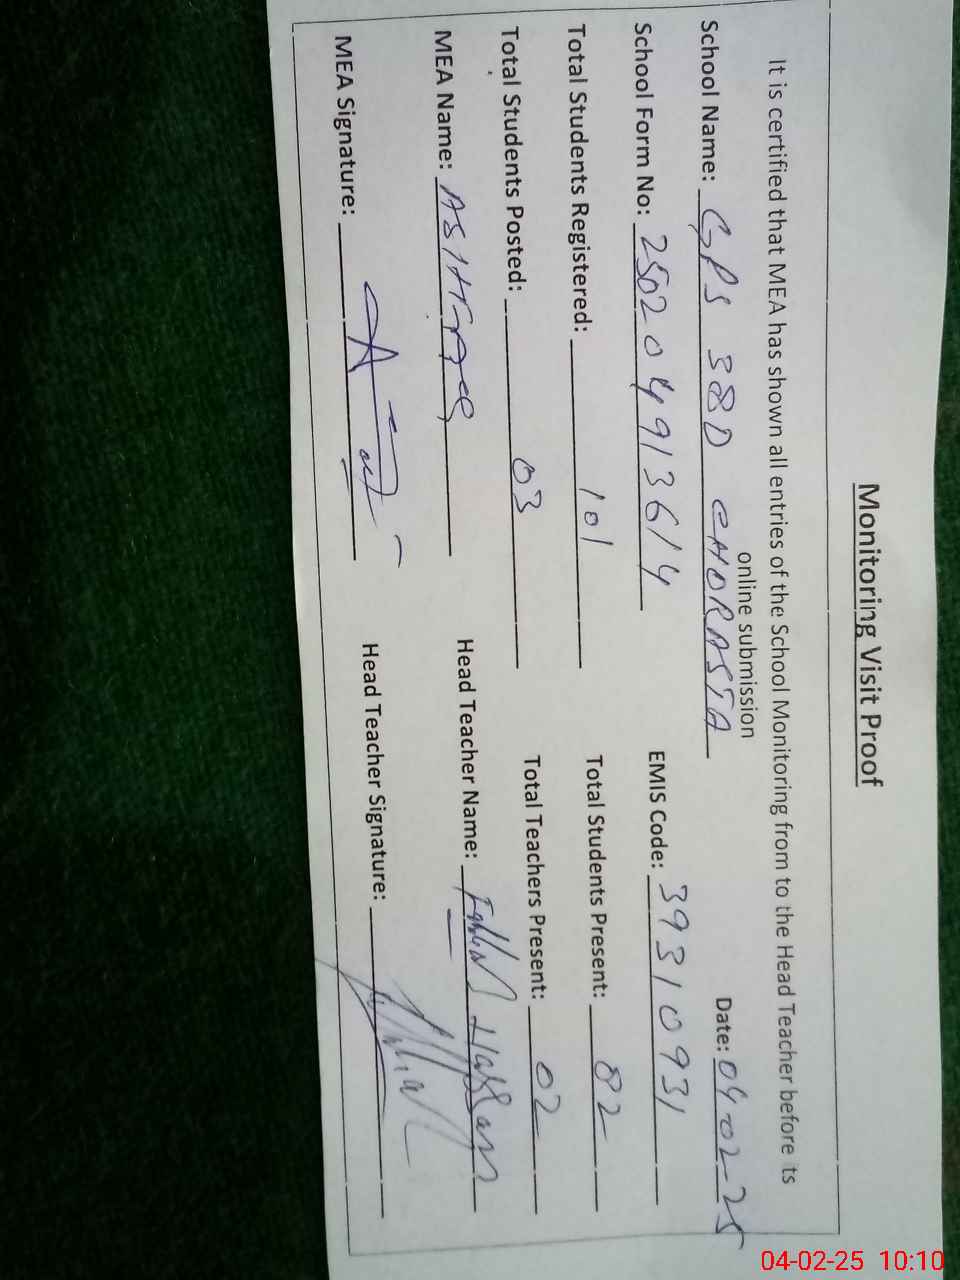 Monitoring Visit Proof
It is certified that MEA has shown all entries of the School Monitoring from to the Head Teacher before its
online submission
School Name: GPS 38D CHORASTA Date: 04-02-25
School Form No: 250204913614 EMIS Code: 39310931
Total Students Registered: 101 Total Students Present: 82
Total Students Posted: 03 Total Teachers Present: 02
MEA Name: Head Teacher Name: Hassan
MEA Signature: Head Teacher Signature:
04-02-25 10:10